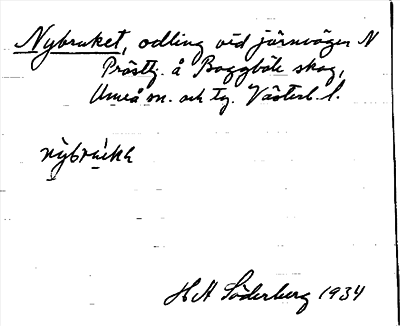 Nybruket, odling vid järnvägen N
Prästtj. å Baggböle skog,
Umeå sn. och tg. Västerb. l.
nybrukk
H A Söderberg 1934